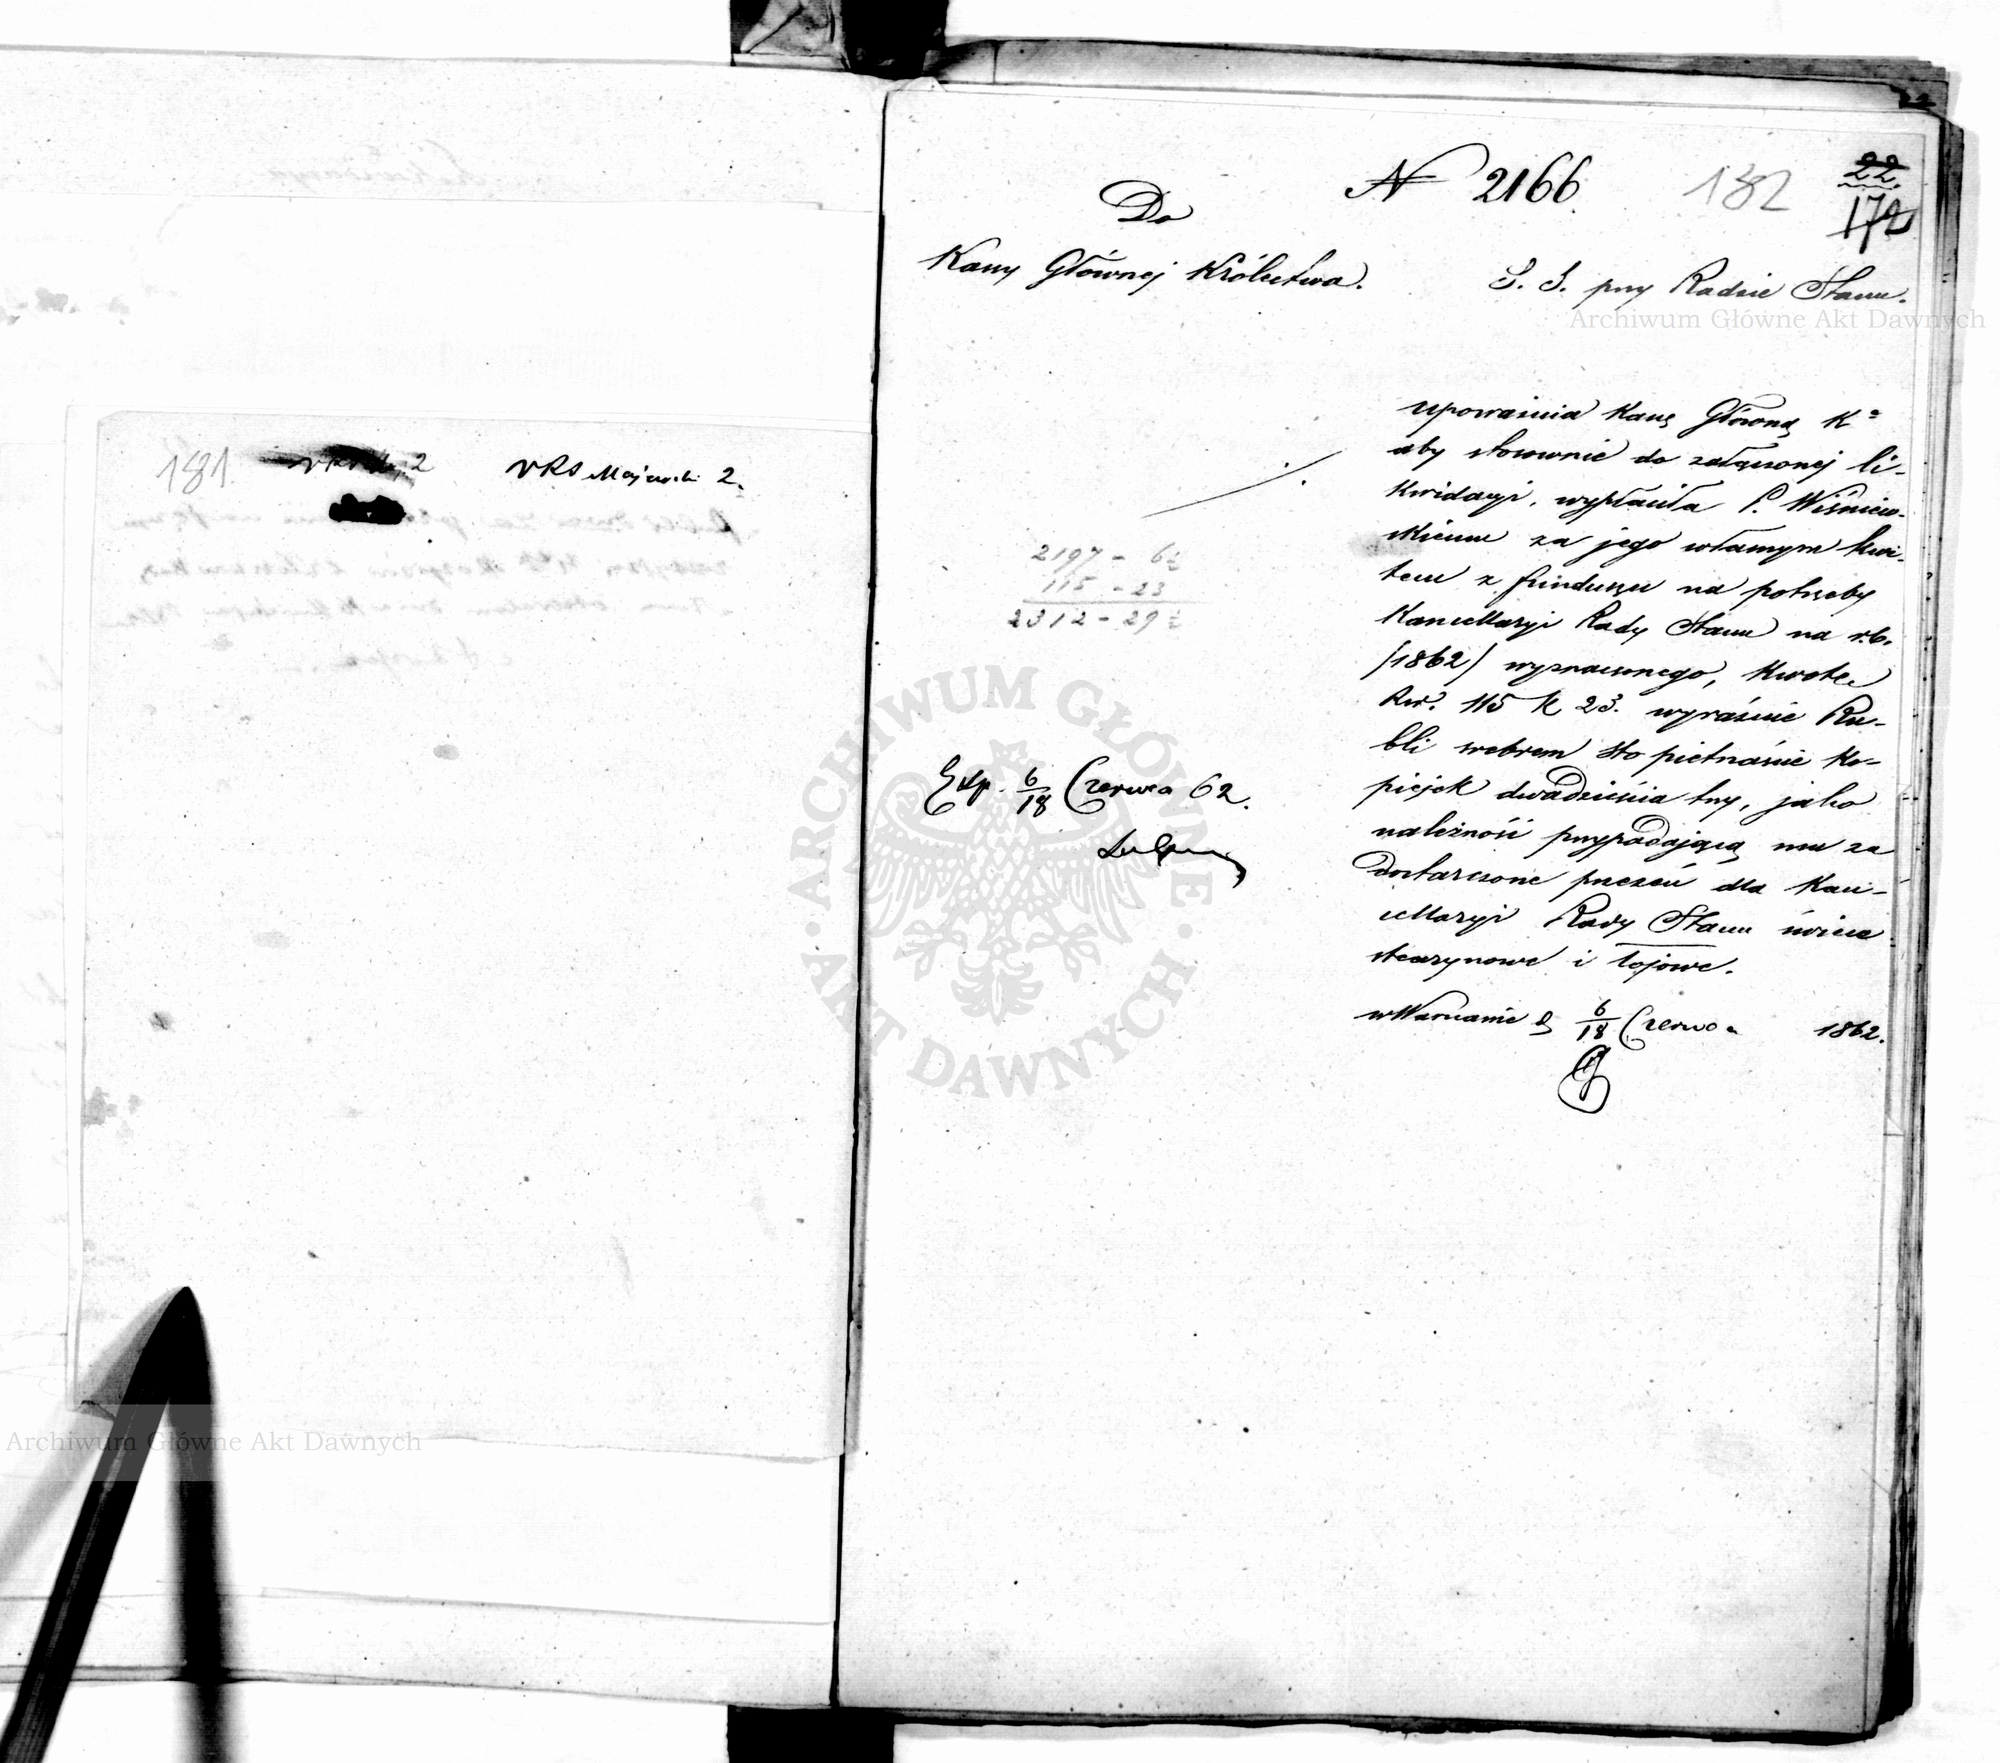 181.
VRS Majewski 2.
22.
172
132
N 2166.
Do
Kassy Głównej Królestwa.
S. S. przy Radzie Stanu.
Archiwum Główne Akt Dawnych
upoważnia Kassę Główną K
aby stosownie do załączonej li-
kwidacyi, wypłaciła P. Wiśniew-
skiemu za jego własnym kwi-
tem z funduszu na potrzeby
Kancellaryi Rady Stanu na r.b.
/1862/ wyznaczonego, kwotę
Rsr. 115 k 23. wyraźnie Ru-
bli srebrem sto piętnaście ko-
piejek dwadzieścia trzy, jako
należność przypadającą mu za
dostarczone przezeń dla Kan-
cellaryi Rady Stanu świece
stearynowe i łojowe.
w Warszawie d 6/18 Czerwca 1862.
2197 - 6½
115 - 23
2312 - 29½
Exp. 6/18 Czerwca 62.
ARCHIWUM GŁÓWNE AKT DAWNYCH
Archiwum Główne Akt Dawnych